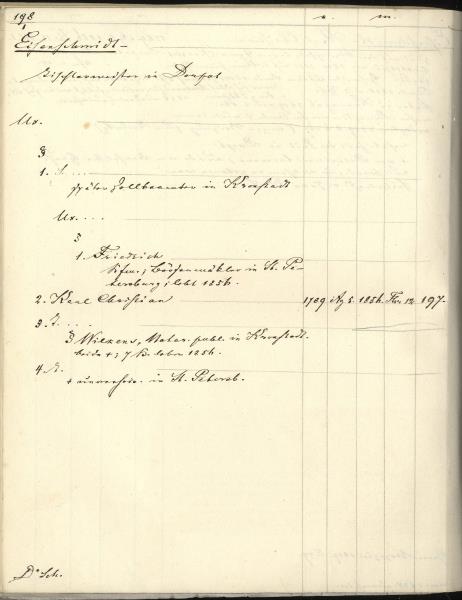 198
Eisenschmidt
Tischlermeister in Dorpat
Ux.
1. S....
später Zollbeamter in Kronstadt
Ux....
1. Friedrich
Kfm., Börsenmäkler in St. Pe-
tersburg; lebt 1856.
2. Karl Christian 1789 Ag 5. 1856. 12 197.
3. T....
Wilkens, Notar. publ. in Kronstadt.
beide +; 7 Kr. leben 1856.
4. T.
+ unverehe. in St. Petersb.
D. Sch.